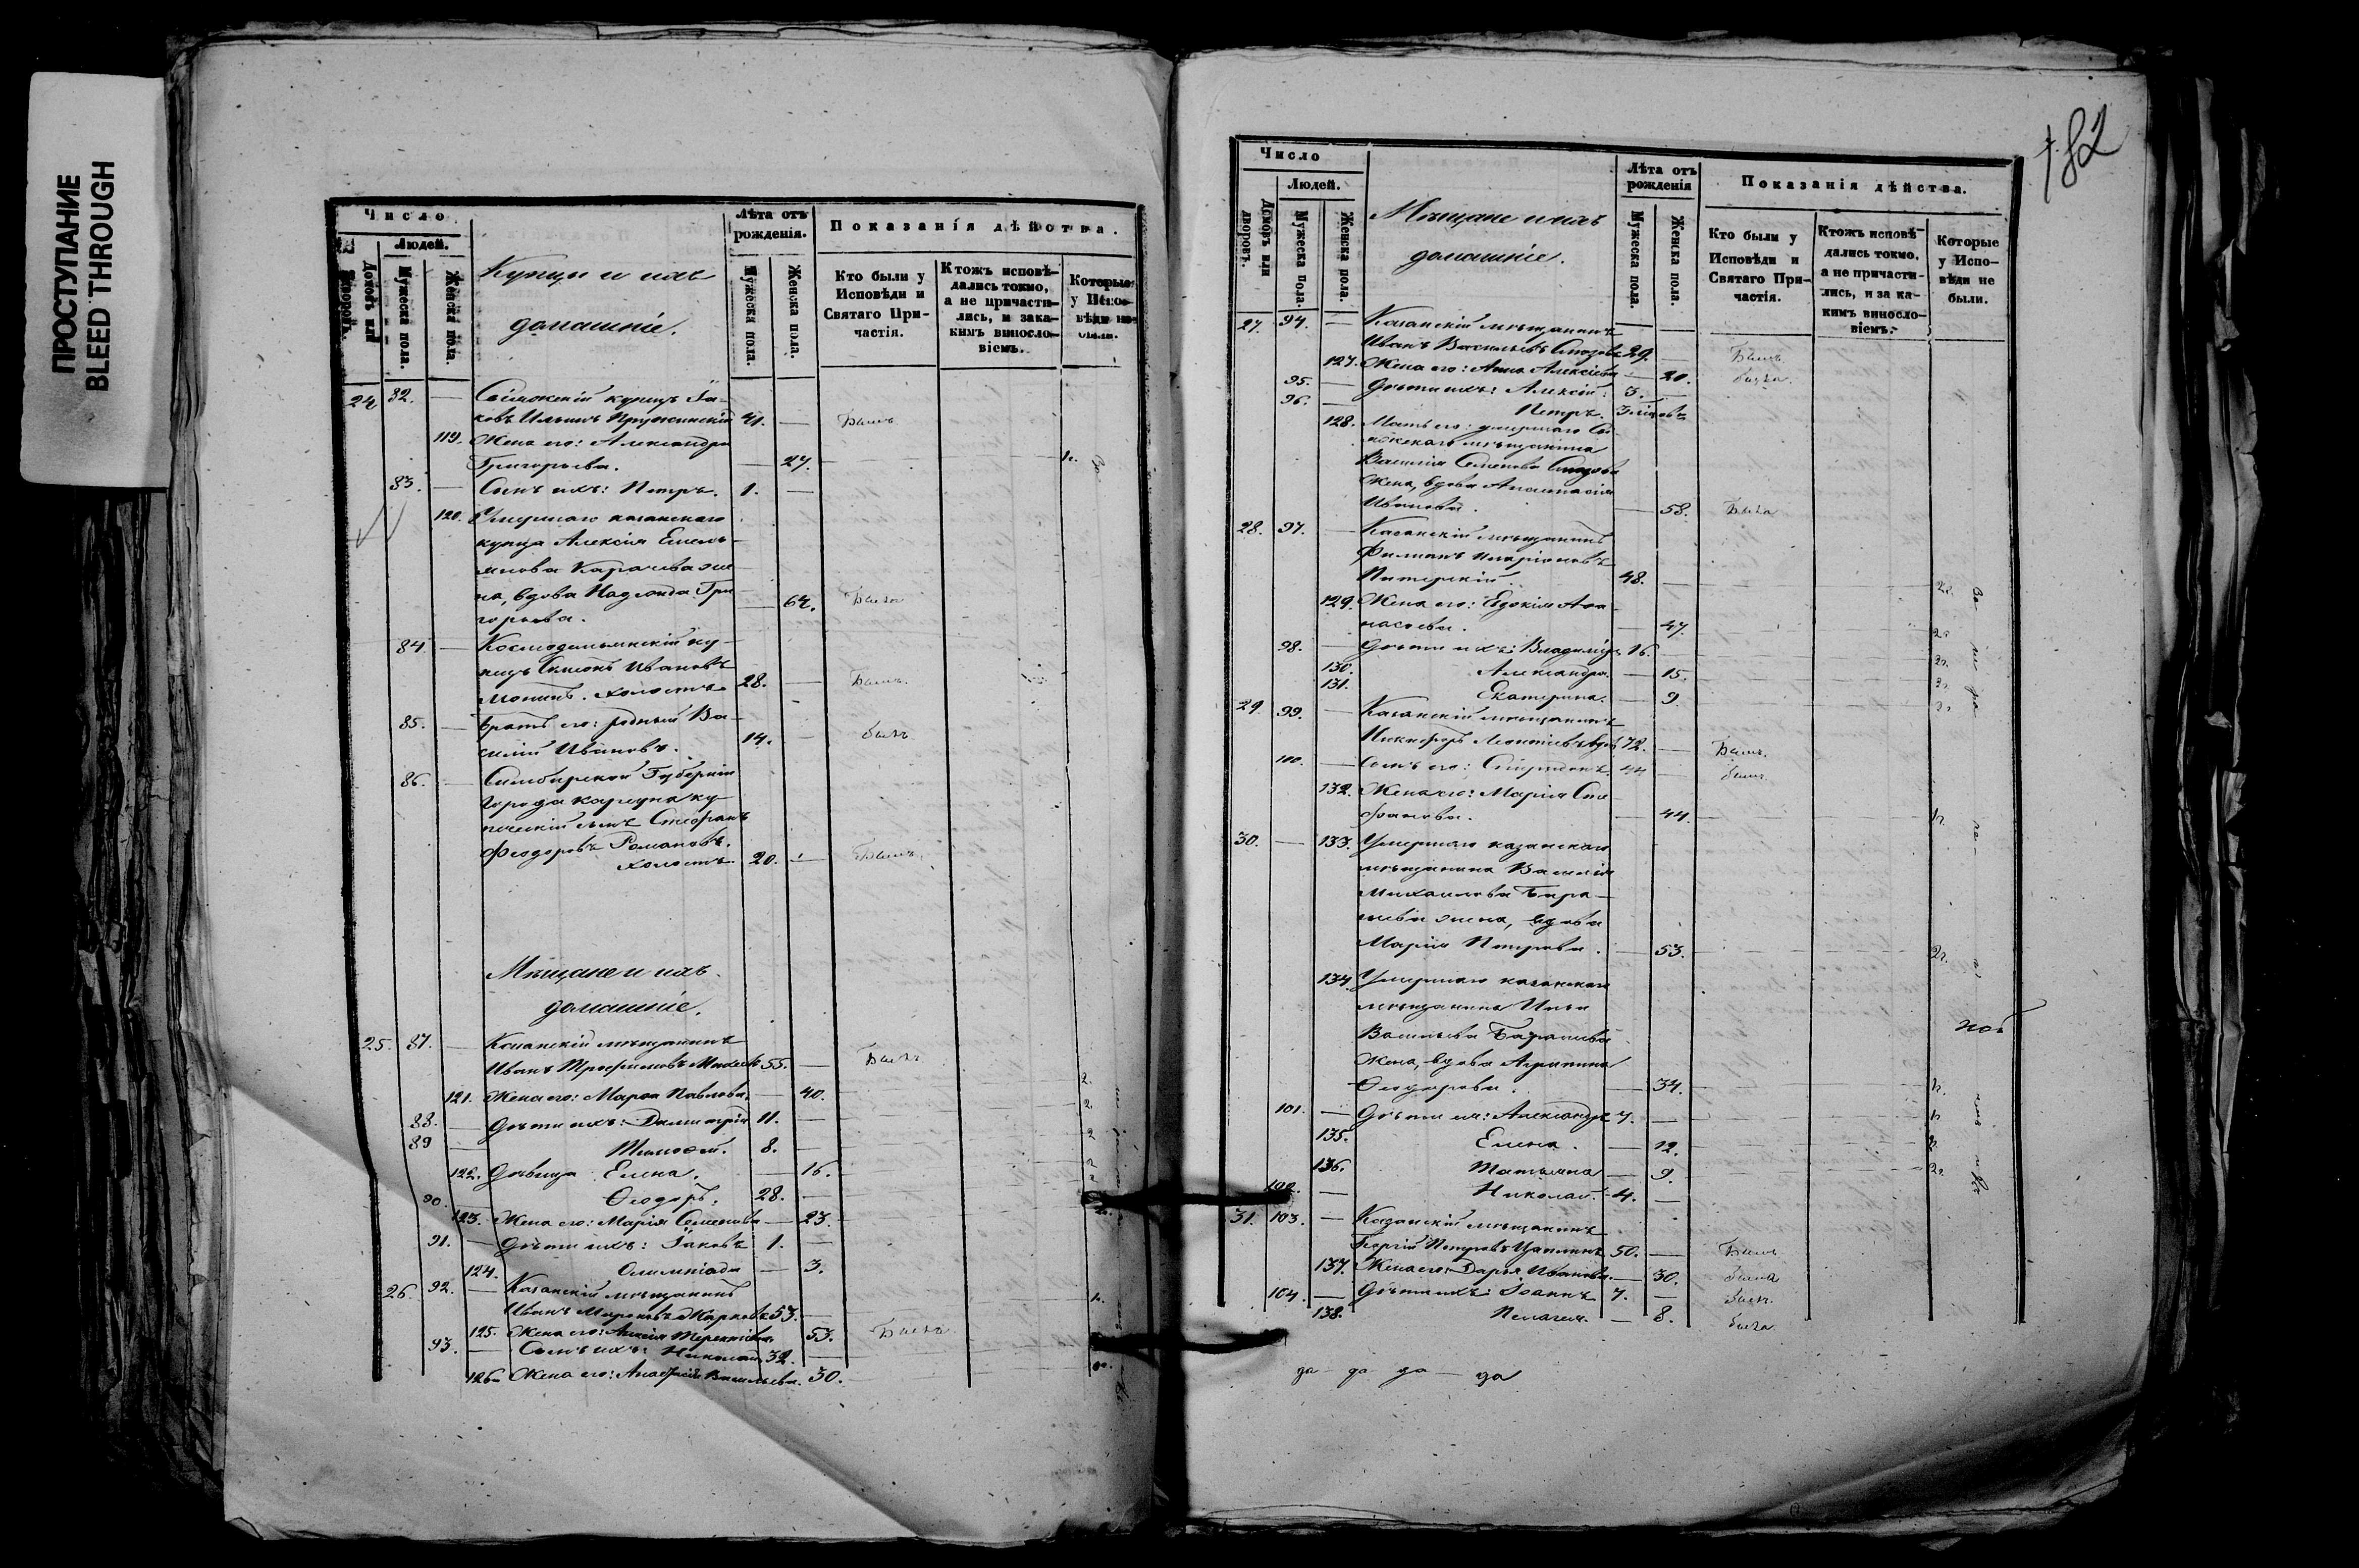 ПРОСТУПАНИЕ
BLEED THROUGH
Число
Людей.
Домовъ или дворовъ.
Мужеска пола.
Женска пола.
Купцы и ихъ
домашніе.
Лѣта отъ
рожденія.
Мужеска пола.
Женска пола.
Показанія дѣйства.
Кто были у
Исповѣди и
Святаго При-
частія.
Ктожъ исповѣ-
дались токмо,
а не причасти-
лись, и зака-
кимъ виносло-
віемъ.
Которые
у Испо-
вѣди не
были.
24 82. — Свіяжскій купецъ Іа-
ковъ Ильинъ 41. — Былъ
119. Жена его: Александра
Григорьева. — 27.
83. — Сынъ ихъ: Петръ. 1. —
120. Умершаго казанскаго
купца Алексія Емель-
янова Карачева же-
на, вдова Надежда Гри-
горьева. — 64. Была
84. — Космодемьянскій ку-
пецъ Симеонъ Ивановъ
холостъ 28. — Былъ.
85. — Братъ его: родный Ва-
силій Ивановъ. 14. — былъ
86. — Симбирской Губерніи
города Карсуна ку-
печескій сынъ Стефанъ
Феодоровъ Романовъ.
холостъ 20. — Былъ.
Мѣщане и ихъ
домашніе.
25. 87. — Казанскій мѣщанинъ
Иванъ Трофимовъ 55. — Былъ
121. Жена его: Марѳа Павлова. — 40.
88. — Дѣти ихъ: Димитрій 11. —
89 — Тимоѳей. 8. —
122. Дѣвица Елена. — 16.
90. Ѳеодоръ. 28. —
123. Жена его: Марія Семенова — 23.
91. — Дѣти ихъ: Іаковъ 1. —
124. Олимпіада — 3.
26. 92. — Казанскій мѣщанинъ
Иванъ Мироновъ 53. —
125. Жена его: Терентіева. 53. Была
93. — Сынъ ихъ: Николай 32.
126. Жена его: Анастасія Васильева. 30.
182
Число
Людей.
Домовъ или дворовъ.
Мужеска пола.
Женска пола.
Мѣщане и ихъ
домашніе.
Лѣта отъ
рожденія
Мужеска пола.
Женска пола.
Показанія дѣйства.
Кто были у
Исповѣди и
Святаго При-
частія.
Ктожъ исповѣ-
дались токмо,
а не причасти-
лись, и за ка-
кимъ виносло-
віемъ.
Которые
у Испо-
вѣди не
были.
27. 94. — Казанскій мѣщанинъ
Иванъ Васильевъ 29. — Былъ.
127. Жена его: Анна Алексіева — 20. была.
95. — Дѣти ихъ: Алексій 3. —
96. — Петръ.
128. Мать его: умершаго Сві-
яжскаго мѣщанина
Василія Семенова
жена, вдова Анастасія
Иванова. — 58. Была
28. 97. — Казанскій мѣщанинъ
Иларіоновъ
Питерскій 48. —
129. Жена его: Евдокія Аѳа-
насьева. — 47.
98. — Дѣти ихъ: Владиміръ 16.
130. Александра. — 15.
131. Екатерина. — 9.
29. 99. — Казанскій мѣщанинъ
Никифоръ Леонтіевъ 72. — Былъ.
100. — Сынъ его: Спиридонъ. 44 — былъ
132. Жена его: Марія Сте-
фанова. — 44.
30. — 133. Умершаго казанскаго
мѣщанина Василія
Михайлова Бара-
жена, вдова
Марія Петрова. — 53.
134. Умершаго казанскаго
мѣщанина Ильи
Васильева
жена, вдова Агрипина
Ѳеодорова. — 34.
101. — Дѣти ея: Александръ 7. —
135. Елена. — 12.
136. Татьяна — 9.
102. — Николай. 4. —
31. 103. — Казанскій мѣщанинъ
Георгій Петровъ 50. — Былъ
137. Жена его: Дарья Иванова. — 30. Была
104. — Дѣти ихъ: Іоаннъ 7. — Былъ.
138. Пелагея. — 8. была
да — да да — да